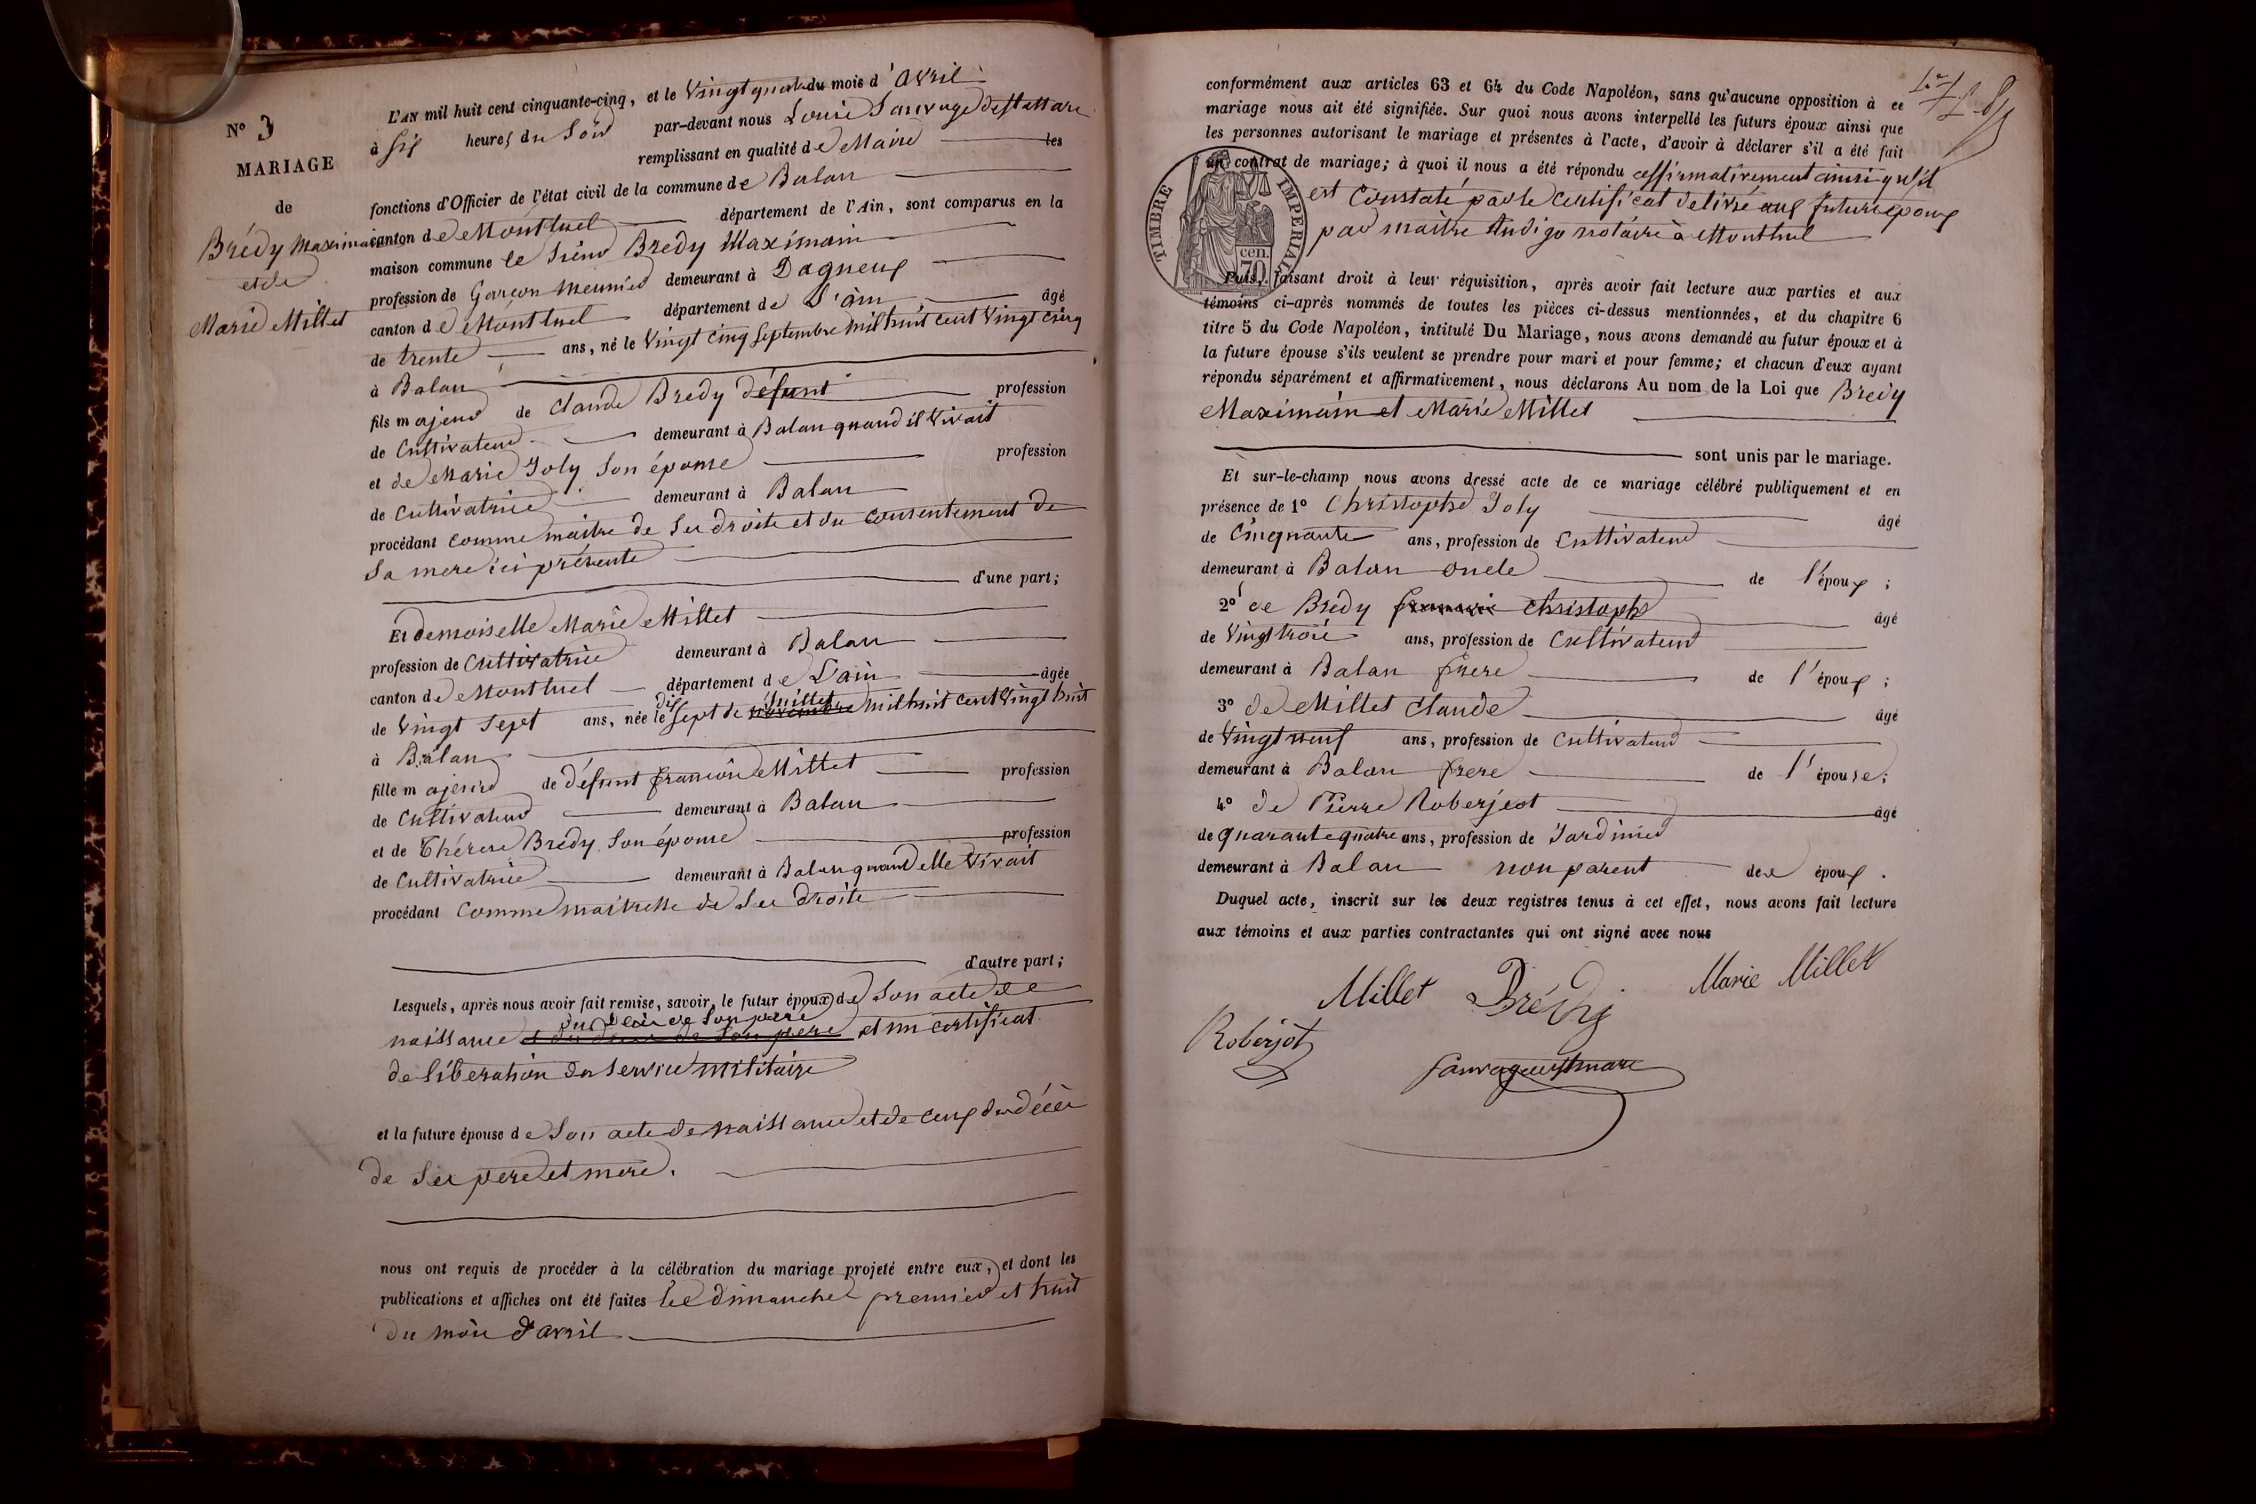 N° 3
MARIAGE
de
Brédy Maximain
et de
Marie Millet
L'AN mil huit cent cinquante-cinq, et le Vingt quatre du mois d'Avril
à Six heures du Soir par-devant nous Louis Sauvage de St Mare
remplissant en qualité de Maire les
fonctions d'Officier de l'état civil de la commune de Balan
canton de Montluel département de l'Ain, sont comparus en la
maison commune le Sieur Bredy Maximain
profession de Garçon meunier demeurant à Dagneux
canton de Montluel département de L'ain âgé
de trente ans, né le Vingt cinq Septembre mil huit cent Vingt cinq
à Balan
fils majeur de Claude Bredy défunt profession
de Cultivateur demeurant à Balan quand il Vivait
et de Marie Joly Son épouse profession
de Cultivatrice demeurant à Balan
procédant Comme maitre de Ses droits et du Consentement de
Sa mere ici présente
d'une part;
Et demoiselle Marie Millet
profession de Cultivatrice demeurant à Balan
canton de Montluel département de L'ain âgée
de Vingt Sept ans, née le dix Sept de Juillet mil huit cent Vingt huit
à Balan
fille majeure de défunt françois Millet profession
de Cultivateur demeurant à Balan
et de Thérese Brédy Son épouse profession
de Cultivatrice demeurant à Balan quand elle Vivait
procédant Comme maitresse de Ses droits
d'autre part;
Lesquels, après nous avoir fait remise, savoir, le futur époux de Son acte de
du décès de Son père
naissance et du décès de Son père et un certificat
de libération du Service militaire
et la future épouse de Son acte de naissance et de Ceux du décès
de Ses pere et mere.
nous ont requis de procéder à la célébration du mariage projeté entre eux, et dont les
publications et affiches ont été faites les dimanches premier et huit
du mois d'avril
conformément aux articles 63 et 64 du Code Napoléon, sans qu'aucune opposition à ce
mariage nous ait été signifiée. Sur quoi nous avons interpellé les futurs époux ainsi que
les personnes autorisant le mariage et présentes à l'acte, d'avoir à déclarer s'il a été fait
un contrat de mariage; à quoi il nous a été répondu affirmativement ainsi qu'il
est Constaté par le Certificat delivré aux futurs époux
par maitre Audigo notaire à Montluel
TIMBRE IMPERIAL
70 cen.
Puis, faisant droit à leur réquisition, après avoir fait lecture aux parties et aux
témoins ci-après nommés de toutes les pièces ci-dessus mentionnées, et du chapitre 6
titre 5 du Code Napoléon, intitulé Du Mariage, nous avons demandé au futur époux et à
la future épouse s'ils veulent se prendre pour mari et pour femme; et chacun d'eux ayant
répondu séparément et affirmativement, nous déclarons Au nom de la Loi que Bredy
Maximain et Marie Millet
sont unis par le mariage.
Et sur-le-champ nous avons dressé acte de ce mariage célébré publiquement et en
présence de 1° Christophe Joly âgé
de Cinquante ans, profession de Cultivateur
demeurant à Balan oncle de l'époux;
2° de Brédy Christophe âgé
de Vingt trois ans, profession de Cultivateur
demeurant à Balan frere de l'époux;
3° de Millet Claude âgé
de Vingt neuf ans, profession de Cultivateur
demeurant à Balan frere de l'épouse;
4° de Pierre Roberjeot âgé
de quarante quatre ans, profession de Jardinier
demeurant à Balan non parent des époux.
Duquel acte, inscrit sur les deux registres tenus à cet effet, nous avons fait lecture
aux témoins et aux parties contractantes qui ont signé avec nous
Millet Brédy Marie Millet
Roberjot
Sauvage de St mare